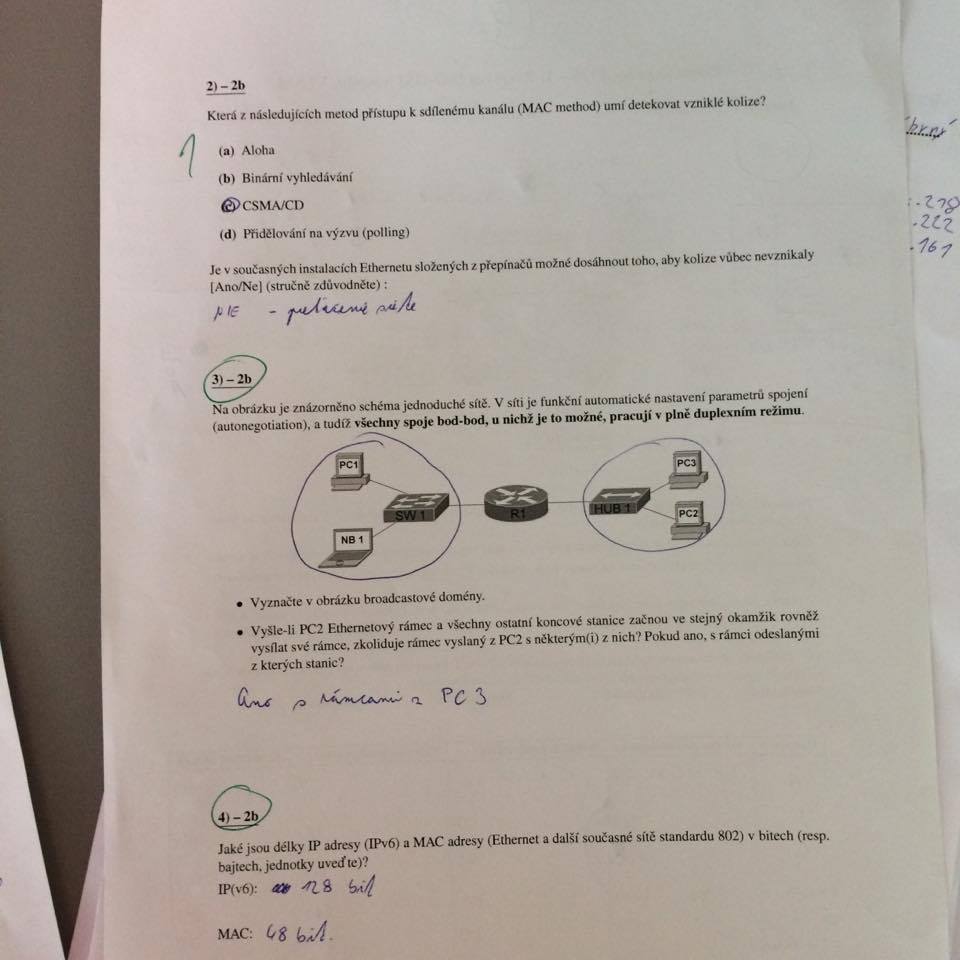 2) – 2b
Která z následujících metod přístupu k sdílenému kanálu (MAC method) umí detekovat vzniklé kolize?
1
(a) Aloha
(b) Binární vyhledávání
(c) CSMA/CD
(d) Přidělování na výzvu (polling)
Je v současných instalacích Ethernetu složených z přepínačů možné dosáhnout toho, aby kolize vůbec nevznikaly
[Ano/Ne] (stručně zdůvodněte) :
NIE -
3) – 2b
Na obrázku je znázorněno schéma jednoduché sítě. V síti je funkční automatické nastavení parametrů spojení
(autonegotiation), a tudíž všechny spoje bod-bod, u nichž je to možné, pracují v plně duplexním režimu.
PC1
PC3
SW 1
R1
HUB 1
PC2
NB 1
• Vyznačte v obrázku broadcastové domény.
• Vyšle-li PC2 Ethernetový rámec a všechny ostatní koncové stanice začnou ve stejný okamžik rovněž
vysílat své rámce, zkoliduje rámec vyslaný z PC2 s některým(i) z nich? Pokud ano, s rámci odeslanými
z kterých stanic?
Ano s rámcami z PC 3
4) – 2b
Jaké jsou délky IP adresy (IPv6) a MAC adresy (Ethernet a další současné sítě standardu 802) v bitech (resp.
bajtech, jednotky uveďte)?
IP(v6): 128 bit
MAC: 48 bit.
.222
.161